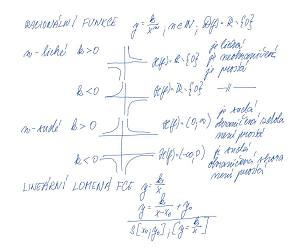 RACIONÁLNÍ FUNKCE y = k/xⁿ, n∈N, D(f) = R - {0}
n-liché k>0 H(f) = R - {0} je lichá
je neohraničená
je prostá
k<0 H(f) = R - {0} —||—
n-sudé k>0 H(f) = (0,∞) je sudá
ohraničená zdola
není prostá
k<0 H(f) = (-∞,0) je sudá
ohraničená shora
není prostá
LINEÁRNÍ LOMENÁ FCE y = k/x
y = k/(x-x₀) + y₀
S[x₀;y₀]; [y = k/x]